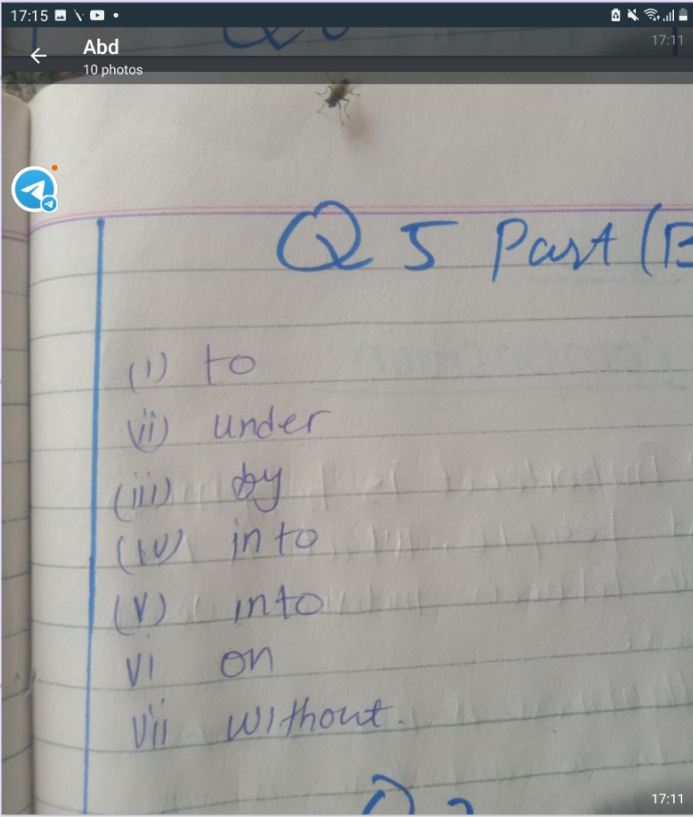 17:15
Abd
10 photos
17:11
Q 5 Part (B
(i) to
ii) under
(iii) by
(iv) into
(v) into
vi on
vii without.
Q
17:11